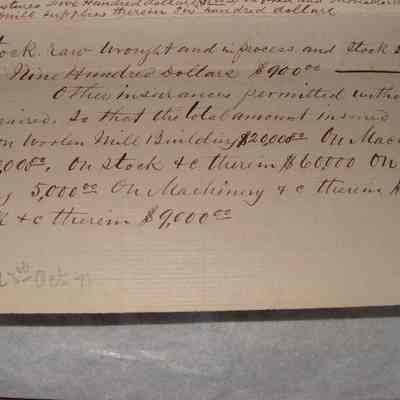 Five Hundred dollars
mill supplies therein Six hundred dollars
Stock raw wrought and in process and stock
Nine Hundred Dollars $900 00
Other insurances permitted without
required. So that the total amount insured
on Woolen Mill Building $20,000 00. On
,000 00. On stock &c therein $60000 On
5,000 00 On Machinery &c therein $
&c therein $9,000 00
Oct